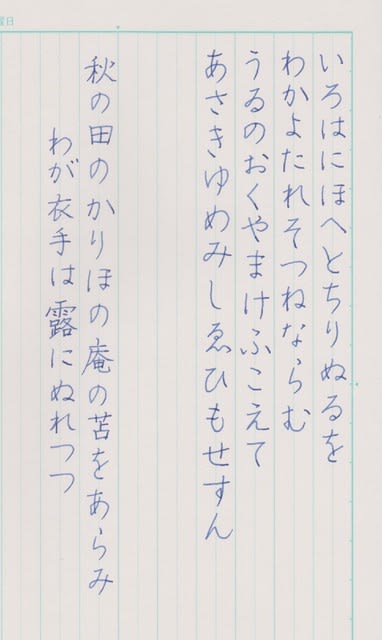 曜日
いろはにほへとちりぬるを
わかよたれそつねならむ
うゐのおくやまけふこえて
あさきゆめみしゑひもせすん
秋の田のかりほの庵の苫をあらみ
わが衣手は露にぬれつつ